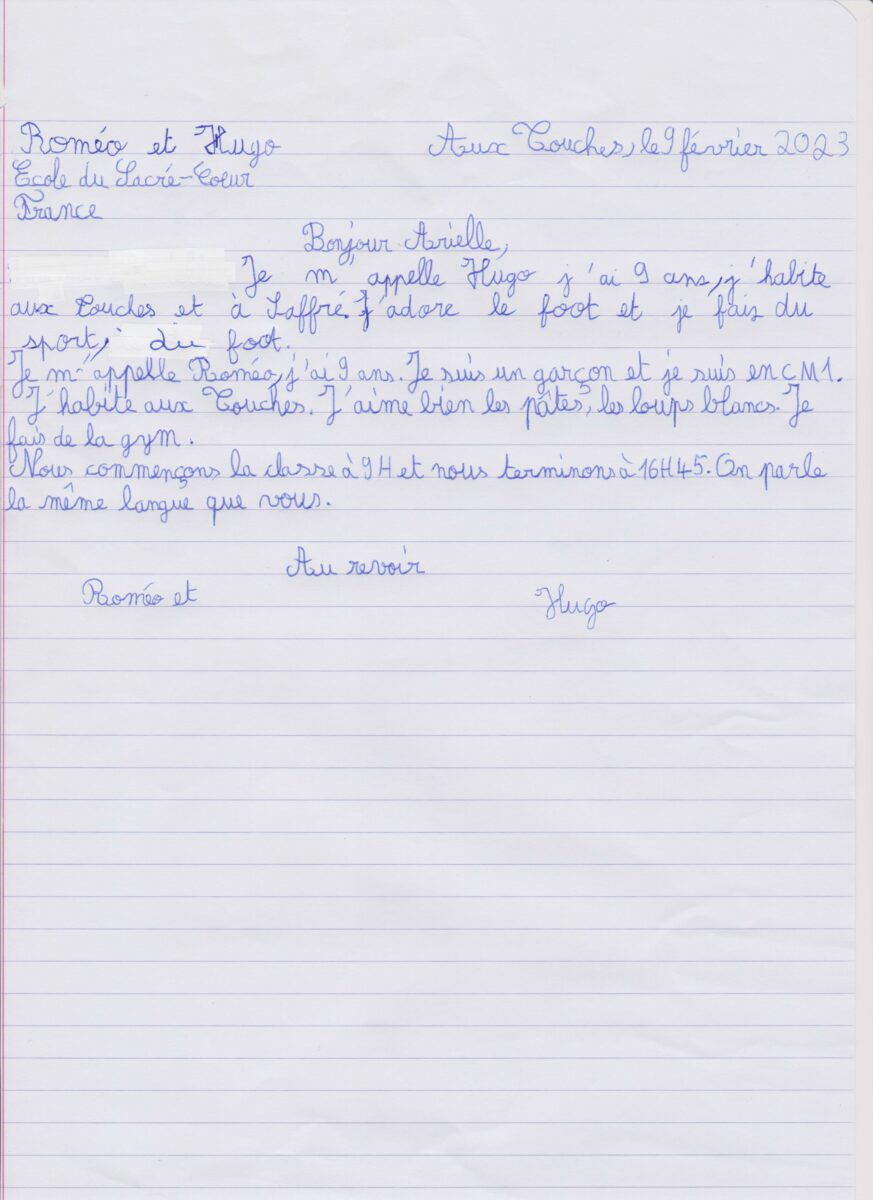 Roméo et Hugo
Aux Touches, le 9 février 2023
Ecole du Sacré-Coeur
France
Bonjour Arielle,
Je m'appelle Hugo j'ai 9 ans, j'habite
aux Touches et à Saffré. J'adore le foot et je fais du
sport, du foot.
Je m'appelle Roméo, j'ai 9 ans. Je suis un garçon et je suis en CM1.
J'habite aux Touches. J'aime bien les pâtes, les loups blancs. Je
fais de la gym.
Nous commençons la classe à 9H et nous terminons à 16H45. On parle
la même langue que vous.
Au revoir
Roméo et
Hugo